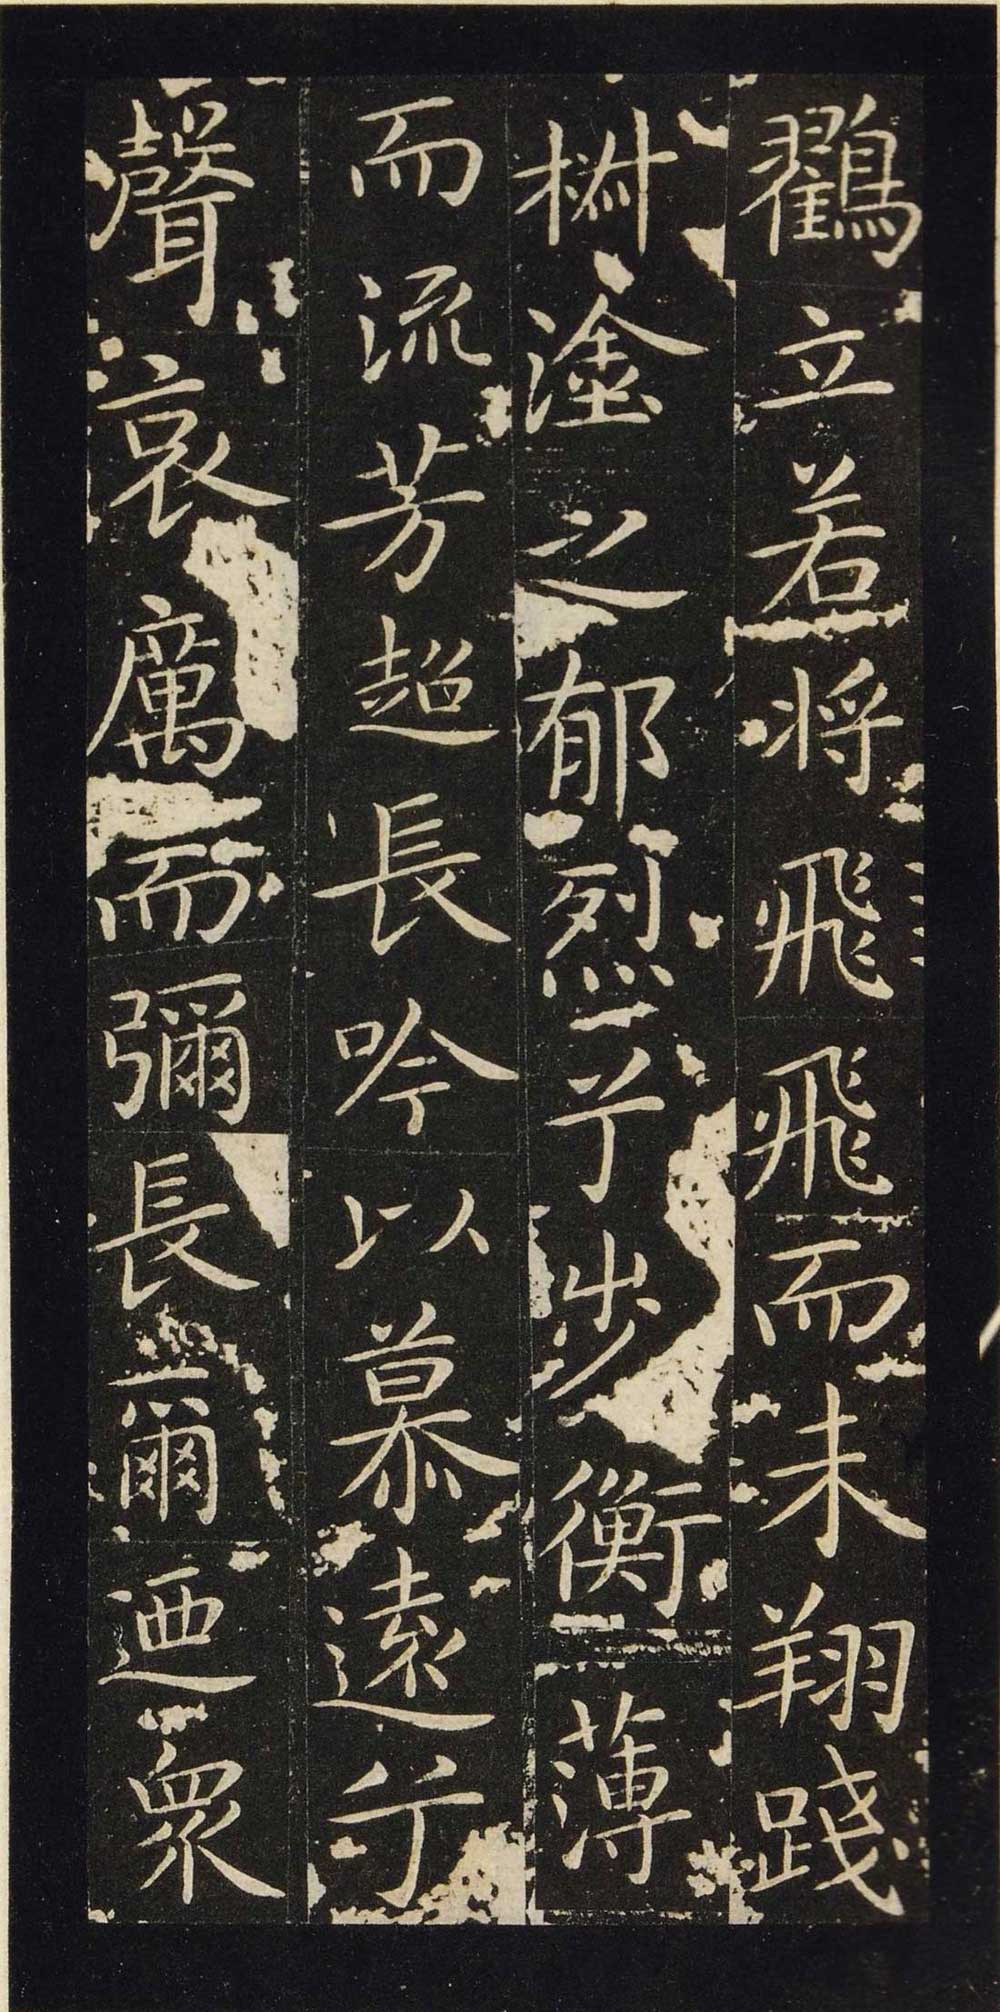 鸛立若將飛飛而未翔踐
椒塗之郁烈兮步衡薄
而流芳超長吟以慕遠兮
聲哀厲而彌長爾迺衆